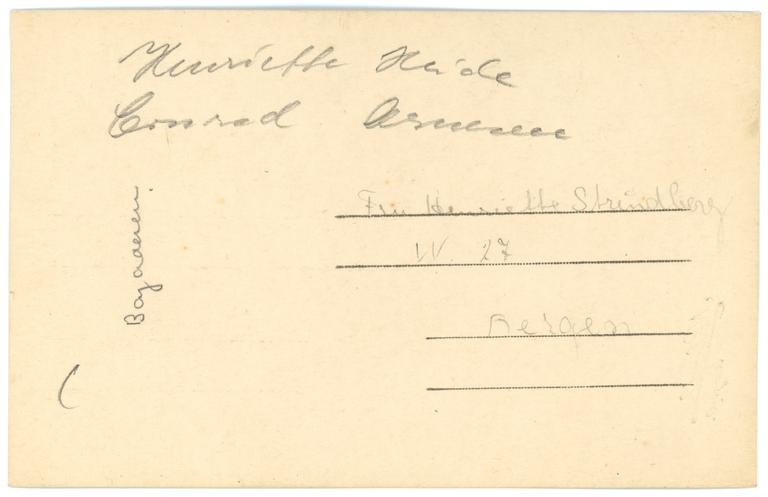 Henriette Heide
Conrad Arnesen
Bajaderen.
Fru Henriette Strindberg
W. 27
Bergen